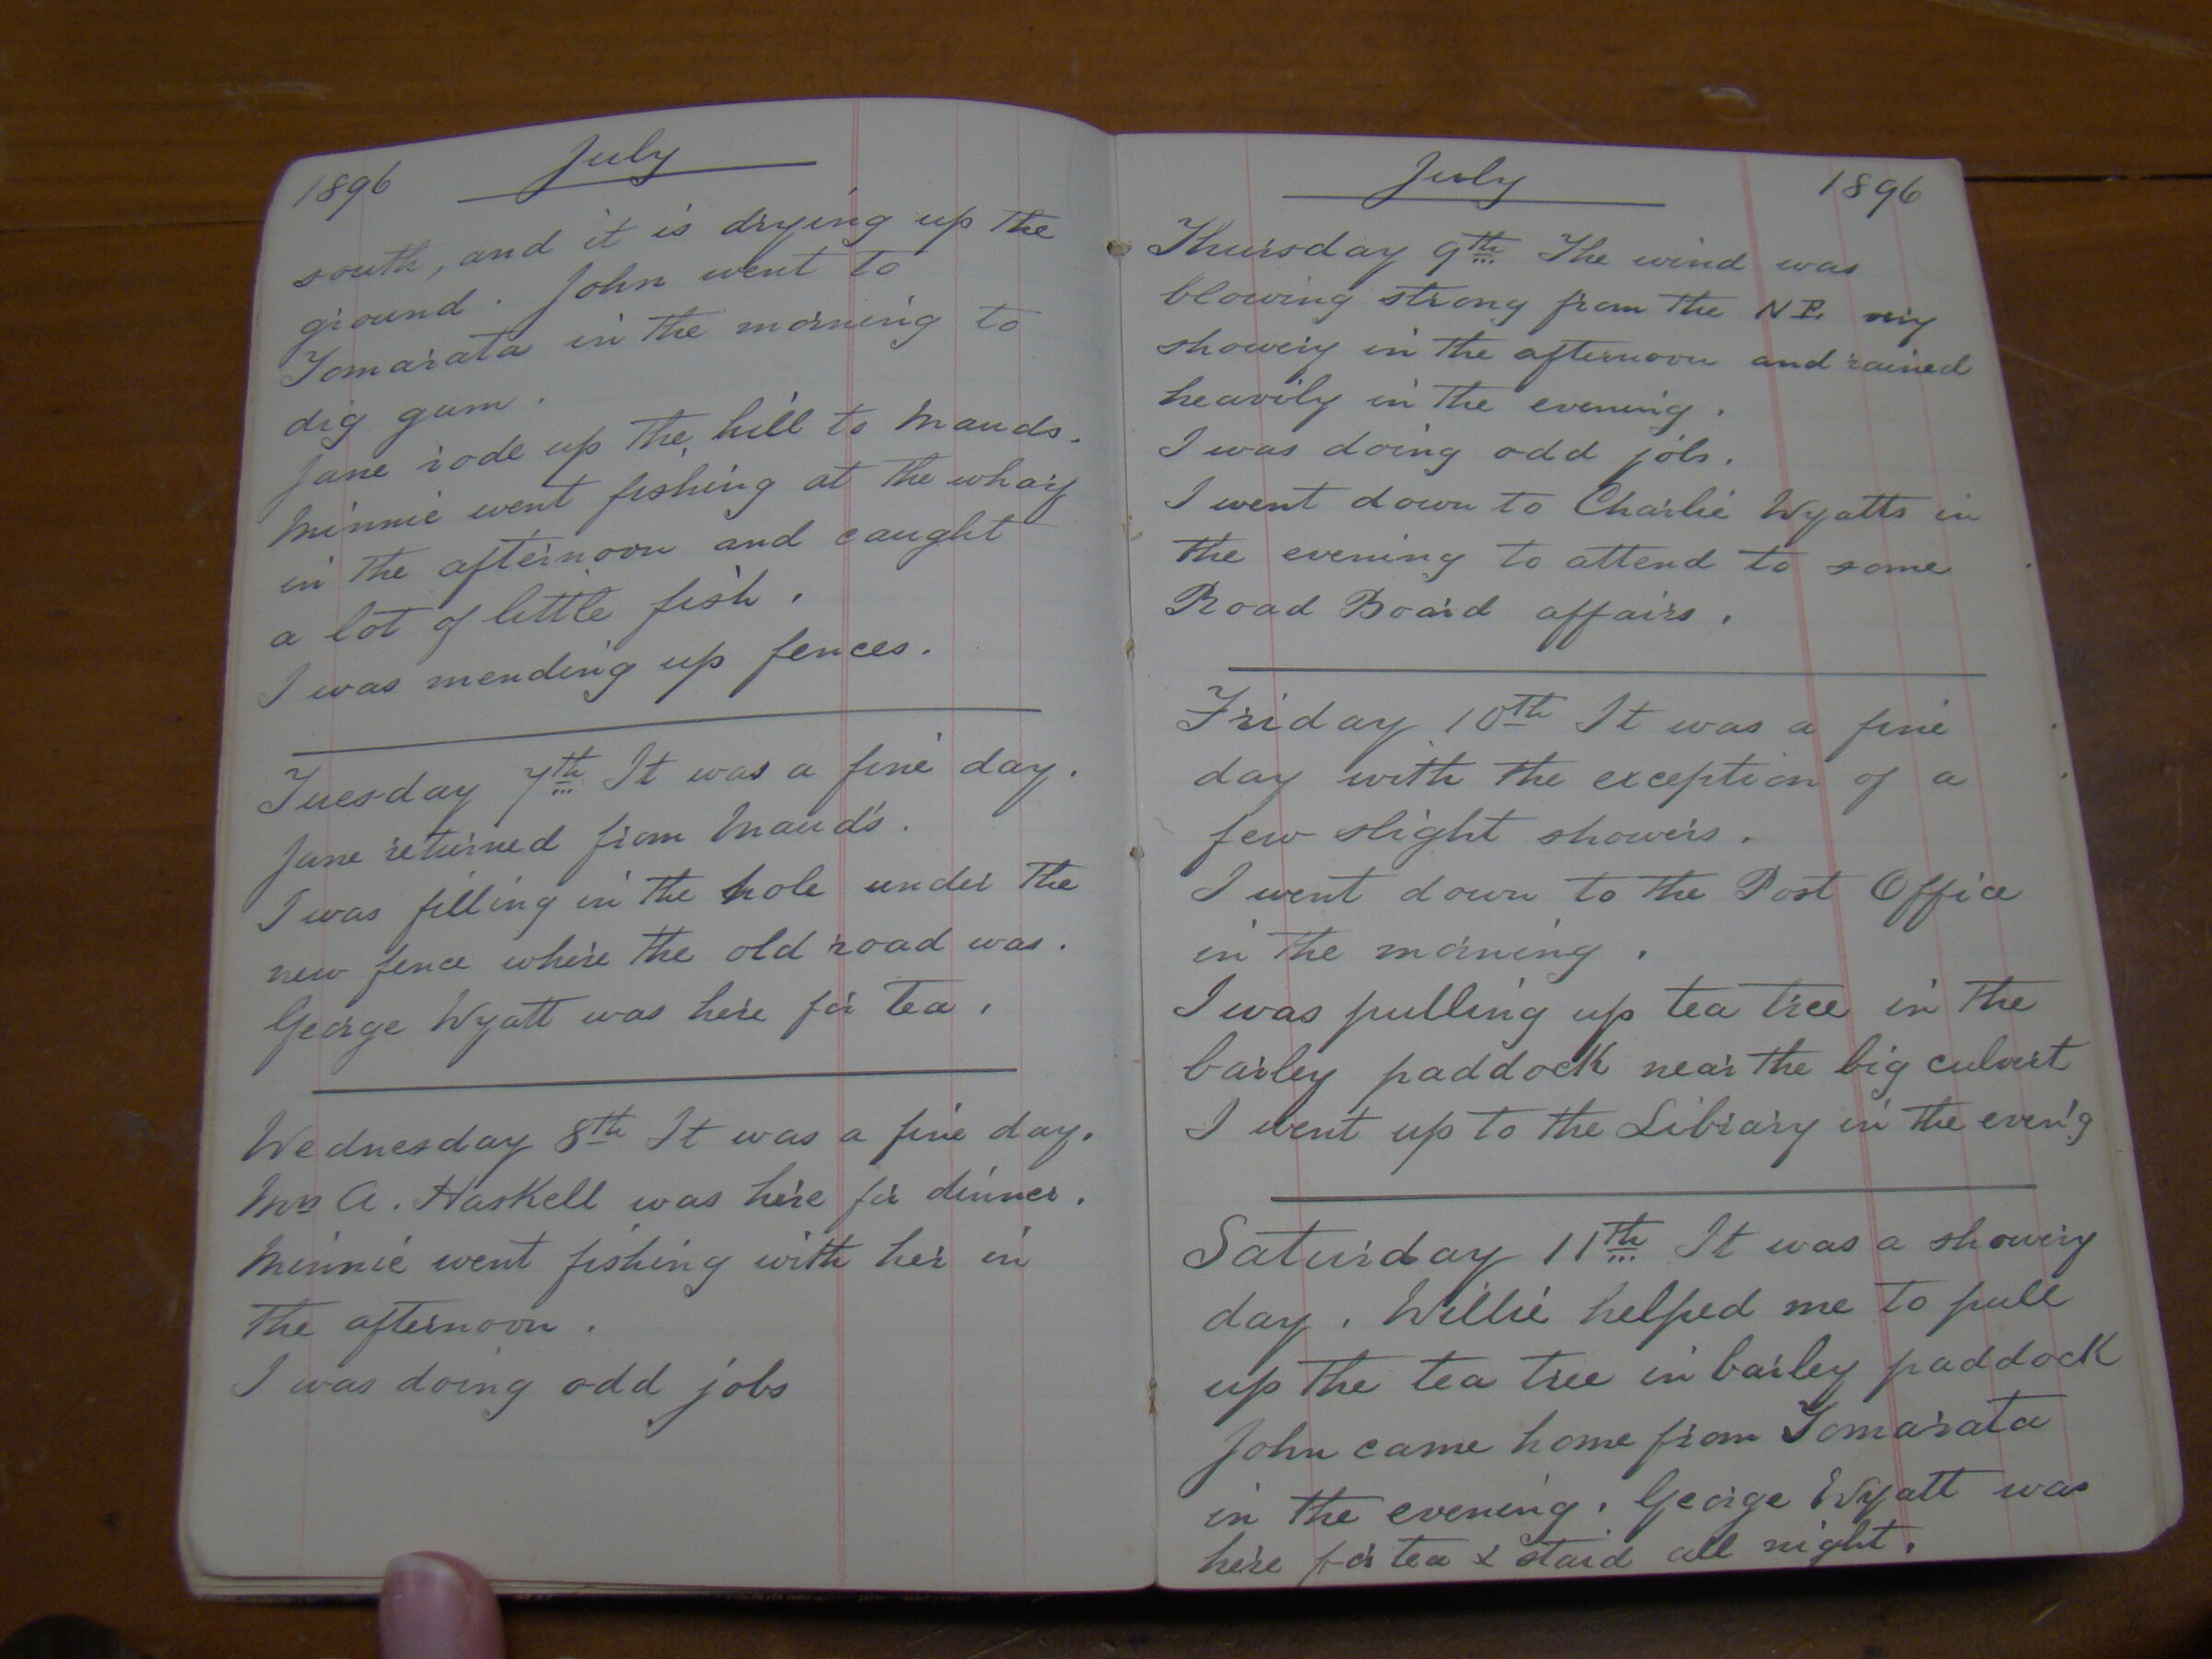 1896 July
south, and it is drying up the
ground. John went to
Tomarata in the morning to
dig gum.
Jane rode up the hill to Mauds.
Minnie went fishing at the wharf
in the afternoon and caught
a lot of little fish.
I was mending up fences.
Tuesday 7th It was a fine day.
Jane returned from Maud's.
I was filling in the hole under the
new fence where the old road was.
George Wyatt was here for tea.
Wednesday 8th It was a fine day.
Mrs A. Haskell was here for dinner.
Minnie went fishing with her in
the afternoon.
I was doing odd jobs
July 1896
Thursday 9th The wind was
blowing strong from the NE. very
showery in the afternoon and rained
heavily in the evening.
I was doing odd jobs.
I went down to Charlie Wyatts in
the evening to attend to some
Road Board affairs.
Friday 10th It was a fine
day with the exception of a
few slight showers.
I went down to the Post Office
in the morning.
I was pulling up tea tree in the
barley paddock near the big culvert
I went up to the Library in the even'g
Saturday 11th It was a showery
day. Willie helped me to pull
up the tea tree in barley paddock
John came home from Tomarata
in the evening. George Wyatt was
here for tea & staid all night.